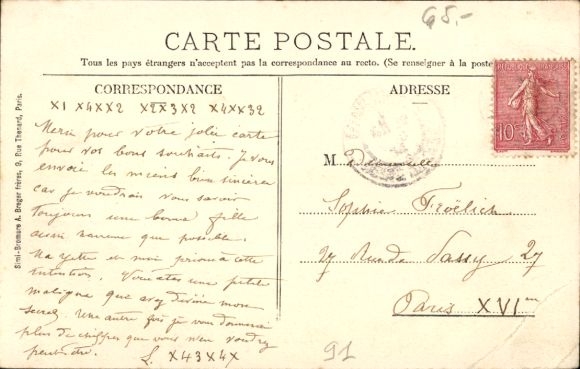 65.-
CARTE POSTALE.
Tous les pays étrangers n'acceptent pas la correspondance au recto. (Se renseigner à la poste
CORRESPONDANCE
X1 X4XX2 X2X3X2 X4XX32
Merci pour votre jolie carte
pour vos bons souhaits. Je vous
envoie les miens bien sincères
car je voudrais vous savoir
toujours une bonne fille
aussi que possible.
et moi prions à cette
intention. Vous êtes une petite
maligne que avez deviné mon
secret. Une autre fois je vous donnerai
plus de chiffres que vous n'en voudrez
peut-être. L. X43X4X
ADRESSE
M. ademoiselle
Sophie Froëlich
27 Rue de Passy 27
Paris XVIme
10
91
Simi-Bromure A. Breger frères, 9, Rue Thenard, Paris.